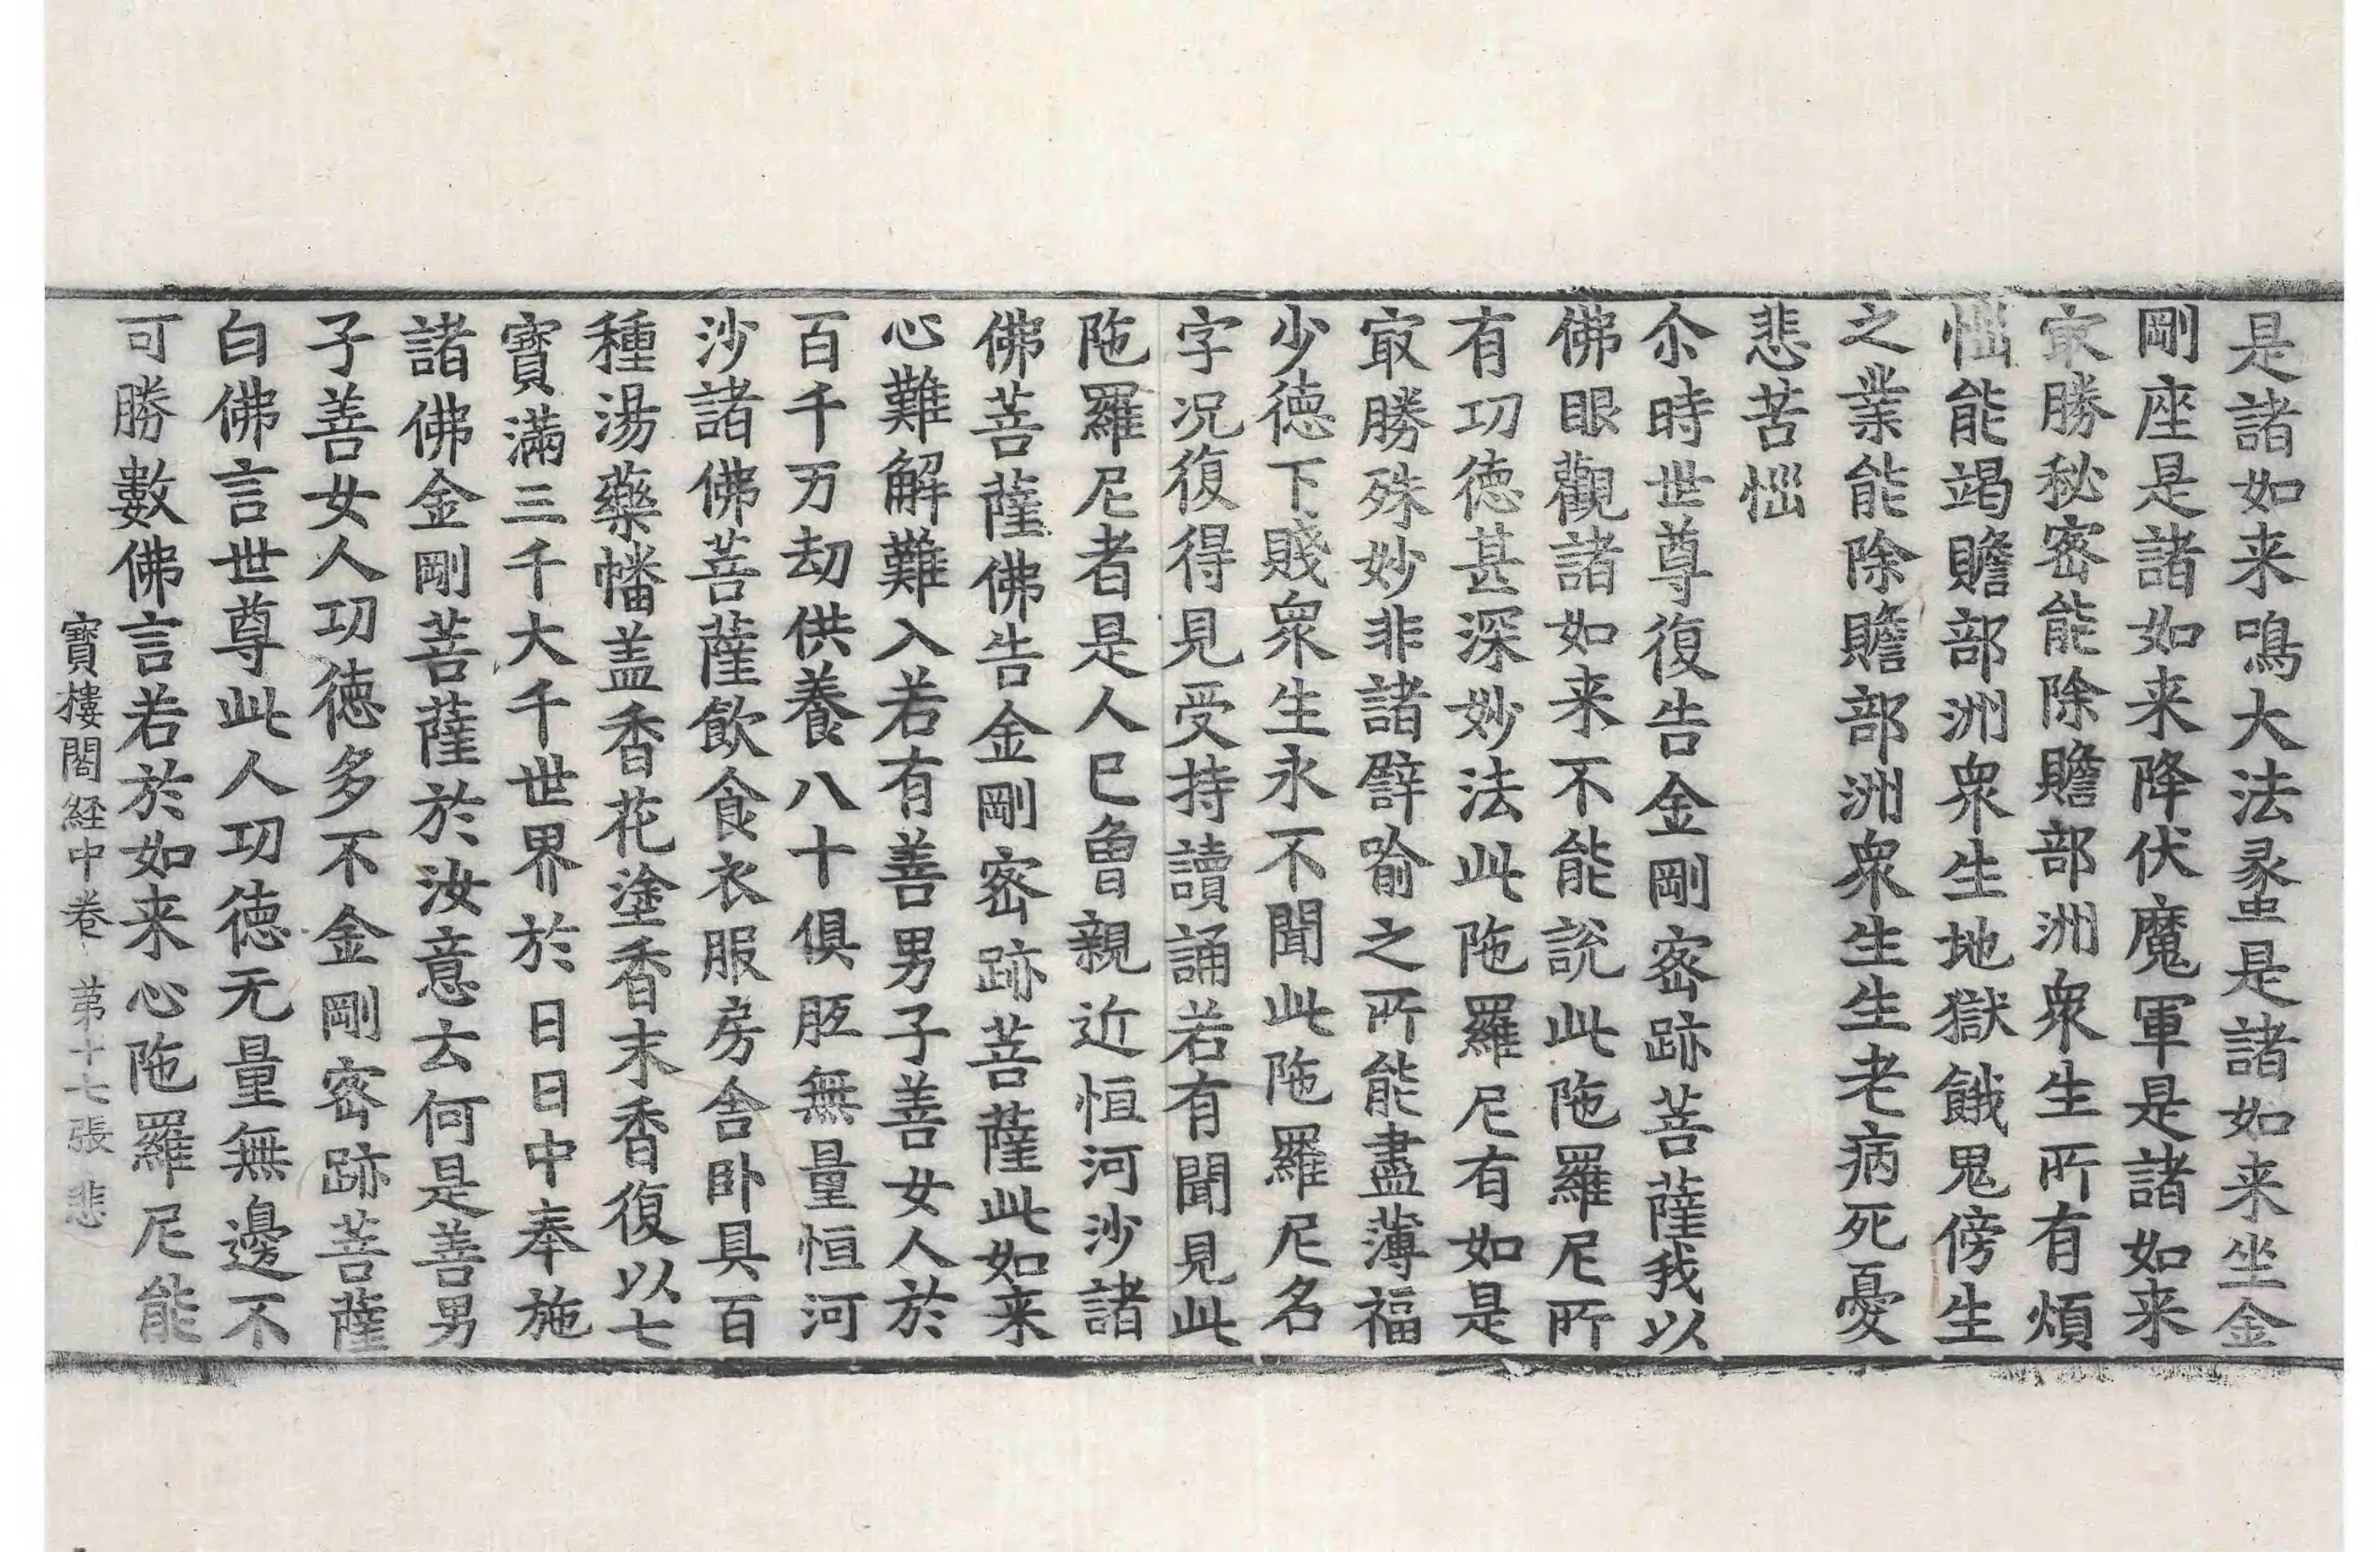 是諸如来鳴大法𧎥是諸如来坐金
剛座是諸如来降伏魔軍是諸如来
㝡勝秘密能除贍部洲衆生所有煩
惱能竭贍部洲衆生地獄餓鬼傍生
之業能除贍部洲衆生生老病死憂
悲苦惱
尒時世尊復告金剛密跡菩薩我以
佛眼觀諸如来不能說此陁羅尼所
有功徳甚深妙法此陁羅尼有如是
㝡勝殊妙非諸譬喻之所能盡薄福
少徳下賤衆生永不聞此陁羅尼名
字况復得見受持讀誦若有聞見此
陁羅尼者是人已曾親近恒河沙諸
佛菩薩佛告金剛密跡菩薩此如来
心難解難入若有善男子善女人於
百千万劫供養八十俱胝無量恒河
沙諸佛菩薩飲食衣服房舎卧具百
種湯藥幡盖香花塗香末香復以七
寶滿三千大千世界於日日中奉施
諸佛金剛菩薩於汝意云何是善男
子善女人功徳多不金剛密跡菩薩
白佛言世尊此人功徳无量無邊不
可勝數佛言若於如来心陁羅尼能
寶樓閣経中卷 第十七張 悲